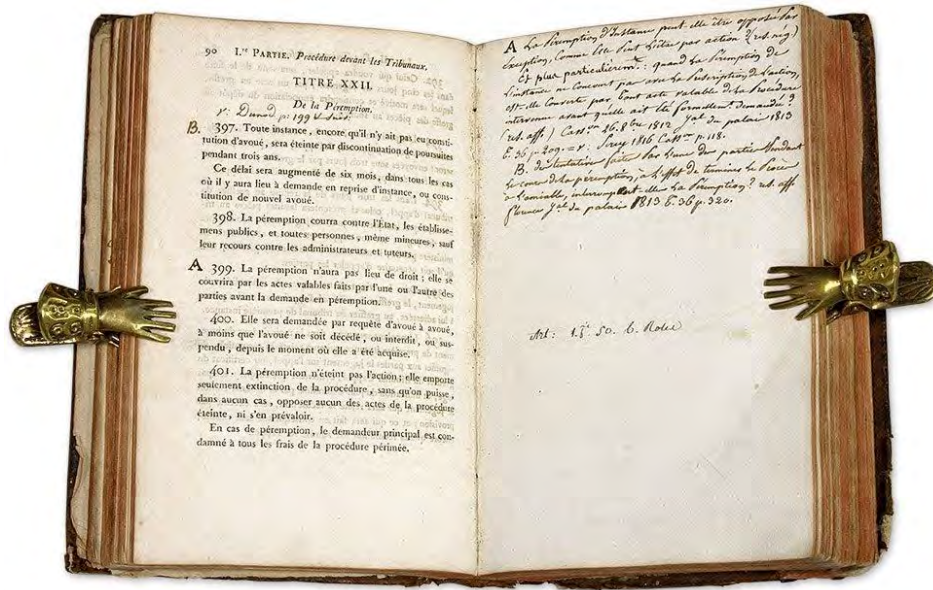 90 I.re PARTIE. Procédure devant les Tribunaux.
TITRE XXII.
De la Péremption.
v. Dunod p. 199 & suiv.
B. 397. Toute instance, encore qu'il n'y ait pas eu consti-
tution d'avoué, sera éteinte par discontinuation de poursuites
pendant trois ans.
Ce délai sera augmenté de six mois, dans tous les cas
où il y aura lieu à demande en reprise d'instance, ou cons-
titution de nouvel avoué.
398. La péremption courra contre l'État, les établisse-
mens publics, et toutes personnes, même mineures, sauf
leur recours contre les administrateurs et tuteurs.
A 399. La péremption n'aura pas lieu de droit; elle se
couvrira par les actes valables faits par l'une ou l'autre des
parties avant la demande en péremption.
400. Elle sera demandée par requête d'avoué à avoué,
à moins que l'avoué ne soit décédé, ou interdit, ou sus-
pendu, depuis le moment où elle a été acquise.
401. La péremption n'éteint pas l'action; elle emporte
seulement extinction de la procédure, sans qu'on puisse,
dans aucun cas, opposer aucun des actes de la procédure
éteinte, ni s'en prévaloir.
En cas de péremption, le demandeur principal est con-
damné à tous les frais de la procédure périmée.
A La Péremption d'Instance peut-elle être opposée par
Exception, Comme Elle peut L'être par action? (rés. nég.)
Et plus particulièremt. quand la Péremption de
L'instance ne concourt pas avec la Prescription de L'action,
est-elle Couverte par tout acte valable de la Procédure
intervenu avant quelle ait été formellemt. demandée?
(rés. aff.) Casson 26. 8bre 1812 Jal. du palais 1813
T. 36 p. 209. = v. Sirey 1816 Casson p. 118.
B. des tentatives faites par l'une des parties Pendant
le cours de la péremption, à L'effet de terminer le Procès
à L'amiable, interrompent-elles La Péremption? rés. aff.
florence Jal. du palais 1813 T. 36 p. 320.
Art: 15. 50. C.